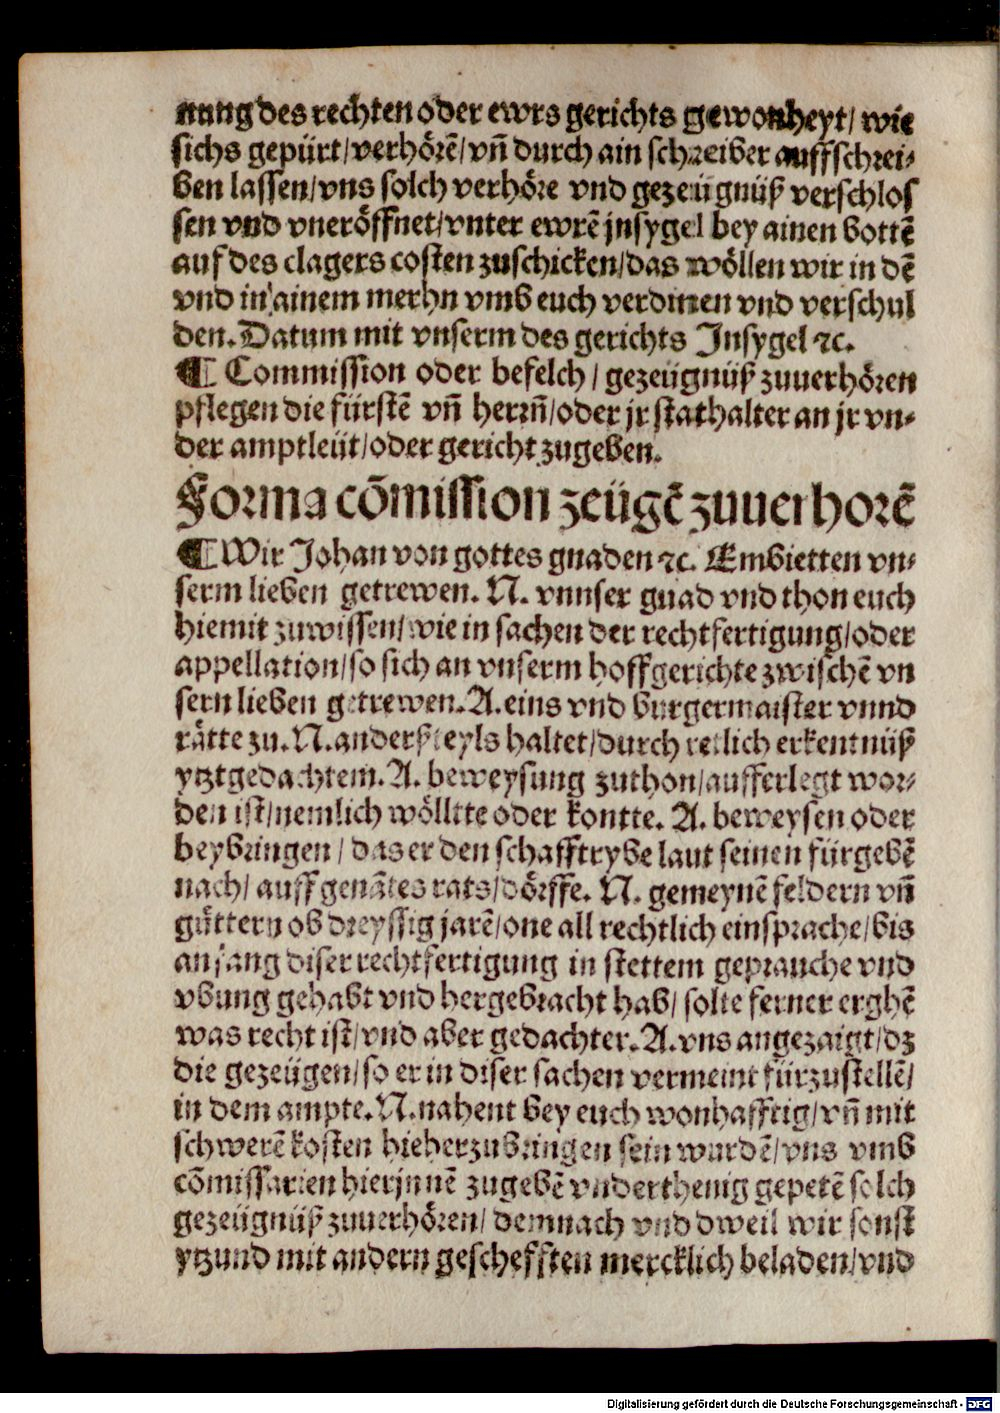 nung des rechten oder ewrs gerichts gewonheyt/ wie
sichs gepürt/verhörē/vn̄ durch ain schreiber auffschrei⸗
ben lassen/vns solch verhöre vnd gezeügnüß verschlos
sen vnd vneröffnet/vnter ewrē jnsygel bey ainen bottē
auf des clagers costen zuschicken/das wöllen wir in dē
vnd in ainem merhn vmb euch verdinen vnd verschul
den. Datum mit vnserm des gerichts Insygel ⁊c.
¶ Commission oder befelch / gezeügnüß zuuerhören
pflegen die fürstē vn̄ herrn̄/oder jr stathalter an jr vn⸗
der amptleüt/oder gericht zugeben.
Forma cōmission zeügē zuuerhorē
¶ Wir Johan von gottes gnaden ⁊c. Embietten vn⸗
serm lieben getrewen. N. vnnser gnad vnd thon euch
hiemit zuwissen/wie in sachen der rechtfertigung/oder
appellation/so sich an vnserm hoffgerichte zwischē vn
sern lieben getrewen. A. eins vnd burgermaister vnnd
rätte zu. N. anderßteyls haltet/durch retlich erkentnüß
ytztgedachtem. A. beweysung zuthon/aufferlegt wor⸗
den ist/nemlich wölltte oder kontte. A. beweysen oder
beybringen / das er den schafftrybe laut seinen fürgebē
nach/ auff genātes rats/dörffe. N. gemeynē feldern vn̄
güttern ob dreyssig jarē/one all rechtlich einsprache/bis
anfang diser rechtfertigung in stettem geprauche vnd
vbung gehabt vnd hergebracht hab/ solte ferner erghē
was recht ist/vnd aber gedachter. A. vns angezaigt/dz
die gezeügen/so er in diser sachen vermeint fürzustellē/
in dem ampte. N. nahent bey euch wonhafftig/vn̄ mit
schwerē kosten hieherzubringen sein wurdē/vns vmb
cōmissarien hierjnnē zugebē vnderthenig gepetē solch
gezeügnüß zuuerhören/ demnach vnd dweil wir sonst
ytzund mit andern geschefften mercklich beladen/vnd
Digitalisierung gefördert durch die Deutsche Forschungsgemeinschaft - DFG